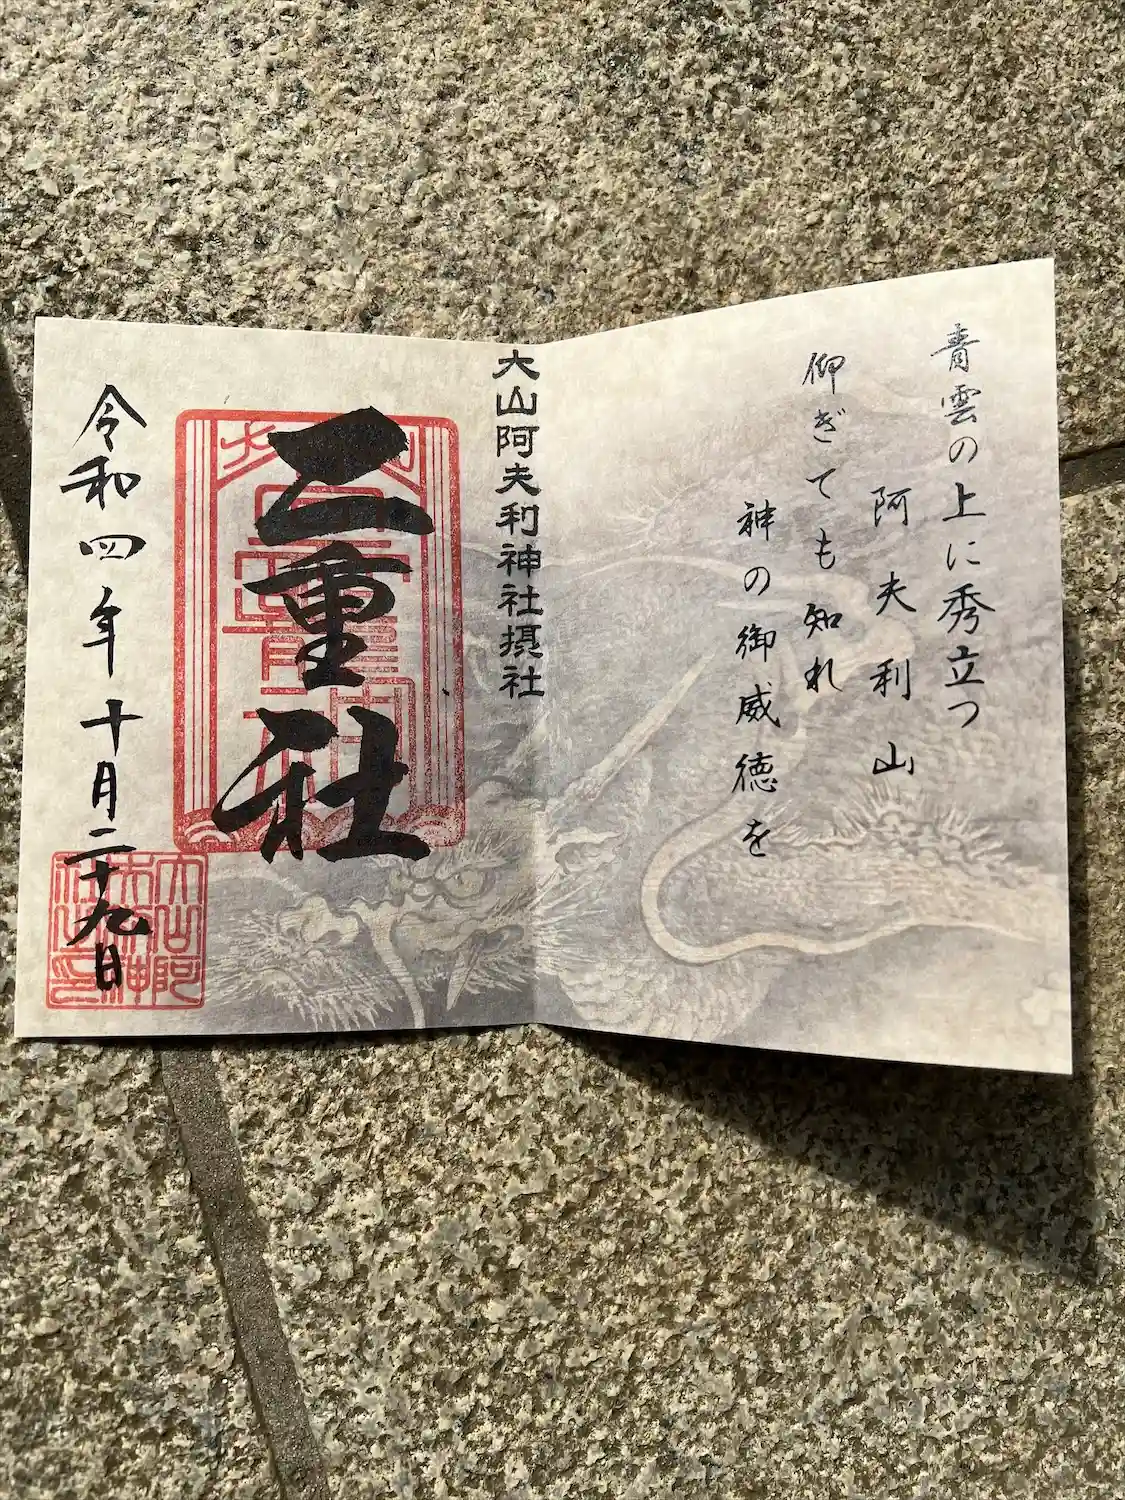 青雲の上に秀立つ
阿夫利山
仰ぎても知れ
神の御威徳を
大山阿夫利神社摂社
二重社
令和四年十月二十九日